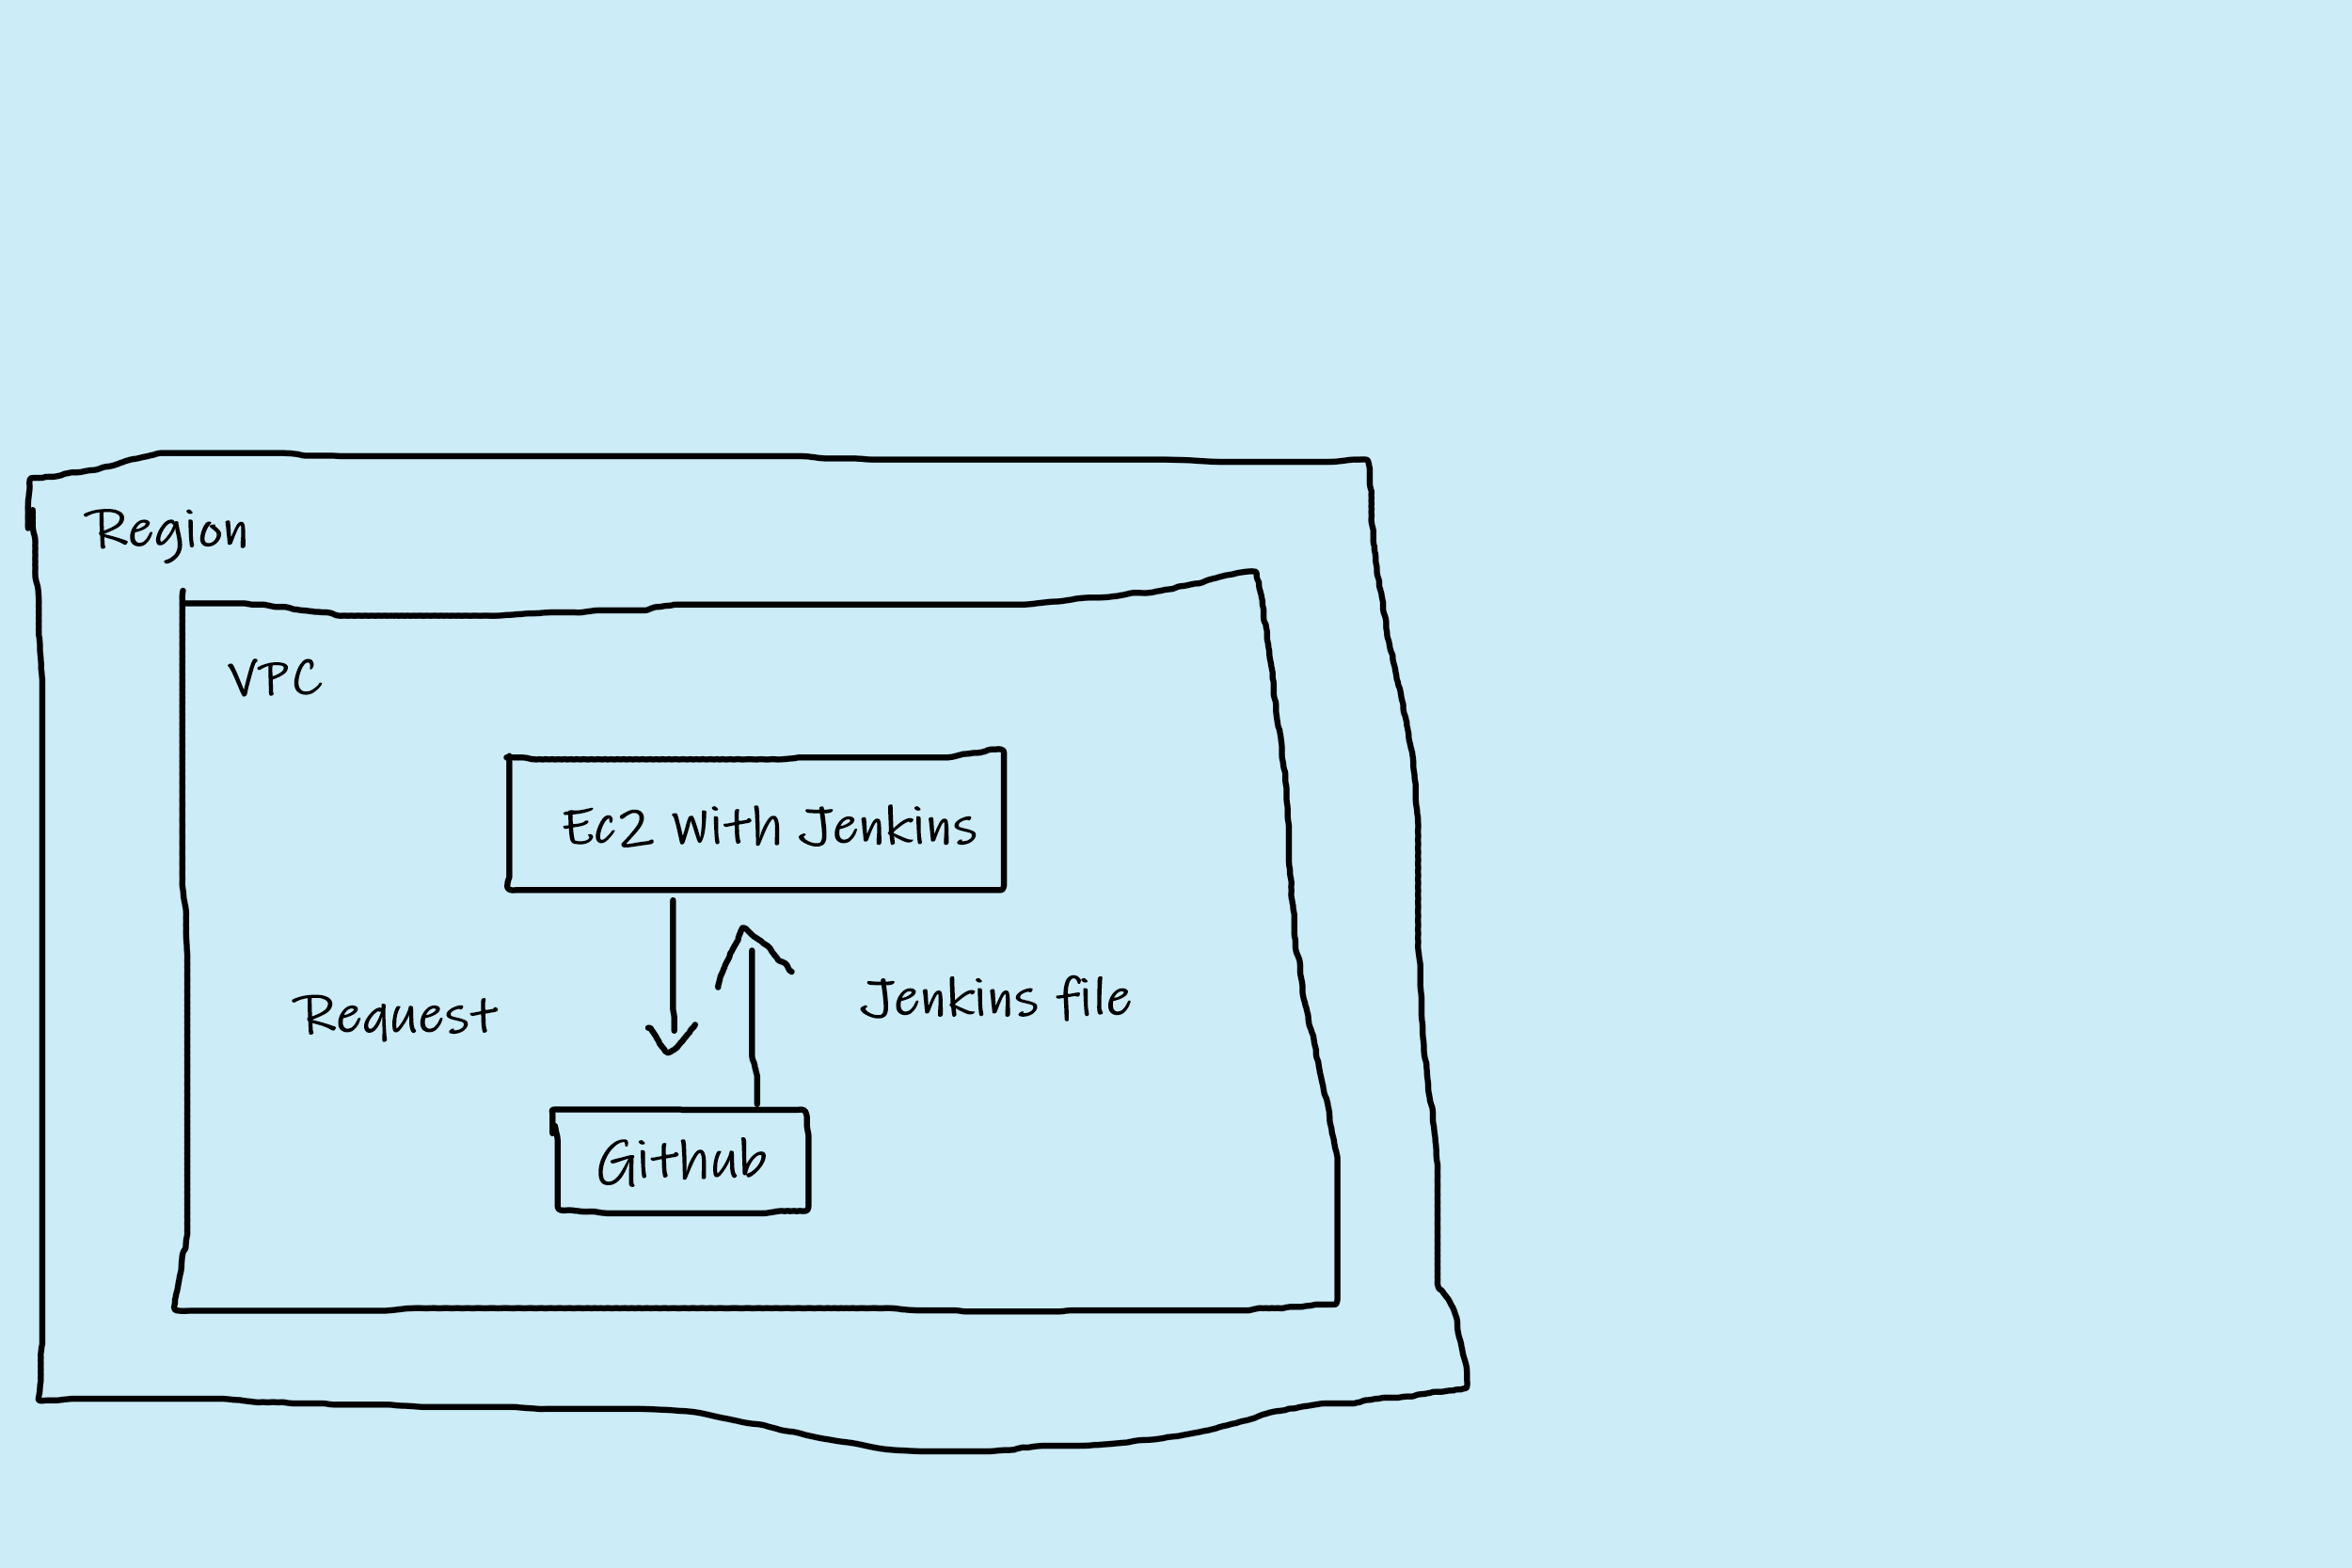 Region
VPC
Ec2 With Jenkins
Request
Jenkins file
Github